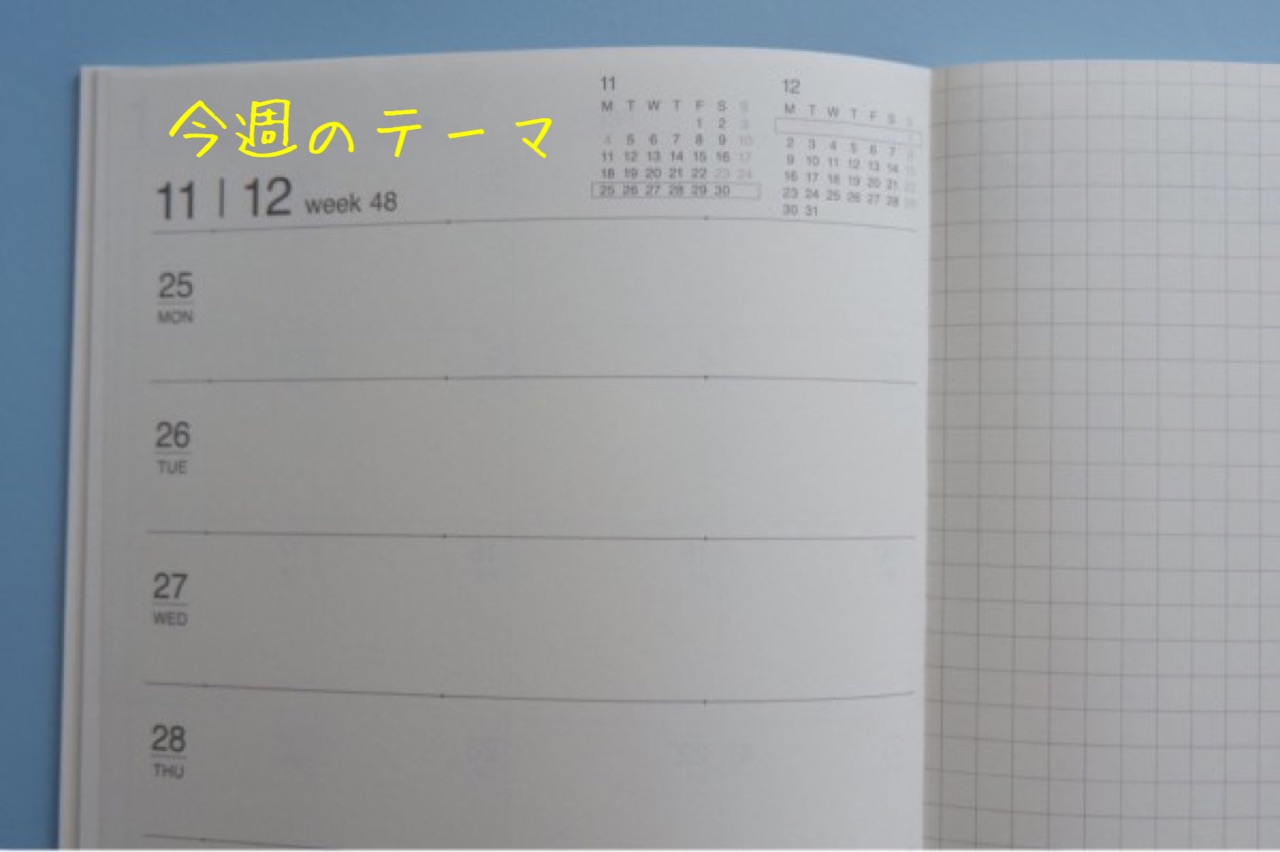 今週のテーマ
11 | 12 week 48
11
M T W T F S S
1 2 3
4 5 6 7 8 9 10
11 12 13 14 15 16 17
18 19 20 21 22 23 24
25 26 27 28 29 30
12
M T W T F S S
2 3 4 5 6 7 8
9 10 11 12 13 14 15
16 17 18 19 20 21 22
23 24 25 26 27 28 29
30 31
25
MON
26
TUE
27
WED
28
THU